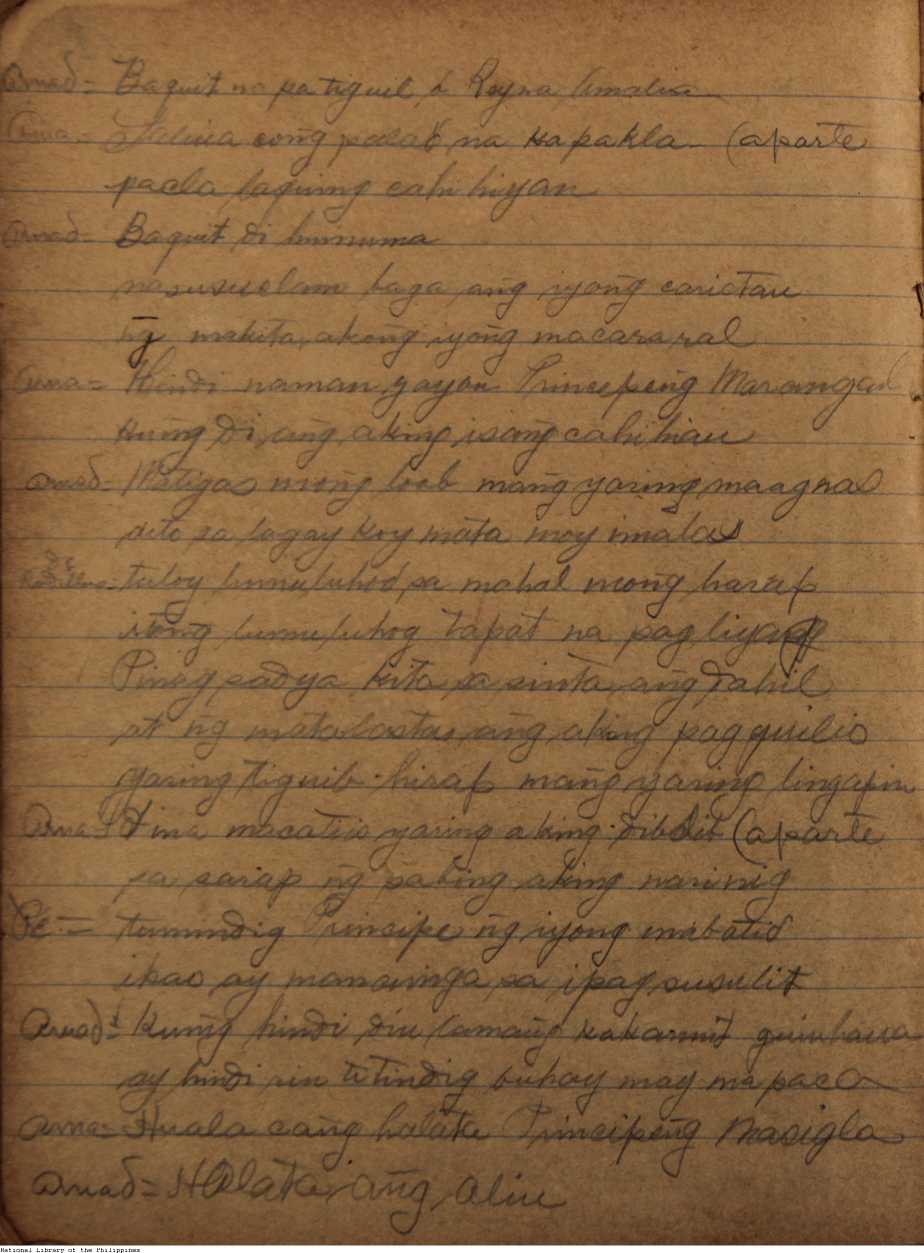 Amad = Baquit na pa tiguil o Reyna Amalia
Ama = cong palad na kapakla (aparte
paela laguing cahihiyan
Amad = Baquit di humuma
nasusuclam baga ang iyong carictan
ng makita akong iyong macararal
Ama = Hindi naman gayon Principeng Marangal
kung di ang aking isang cahihian
Amad = Matigas mong loob mang yaring maagnas
dito sa lagay koy mata moy imalas
tuloy lumuluhod sa mahal mong harap
itong lumuluhog tapat na pag liyag
Pinag sadya kita sa sinta ang dahil
at ng matalastas ang aking pag guilio
yaring tiguib hirap mang yaring lingapin
Ama = Di na macatiis yaring aking dibdib (aparte
sa sarap ng sabing aking narinig
Pe = tumindig Principe ng iyong mabatid
ikao ay manainga sa ipag susulit
Amad = Kung hindi din lamang kakamit guinhawa
ay hindi rin titindig buhay may mapaca
Ama = Huala cang halata Principeng Masigla
Amad = Halata ang alin
National Library of the Philippines